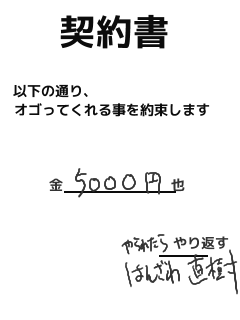 契約書
以下の通り、
オゴってくれる事を約束します
金 5000円 也
やられたら やり返す
はんざわ 直樹